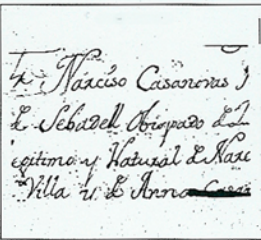 Fr. Narciso Casanovas
de Sebadell Obispado de
legitimo y Natural de Narc
Villa y de Anna